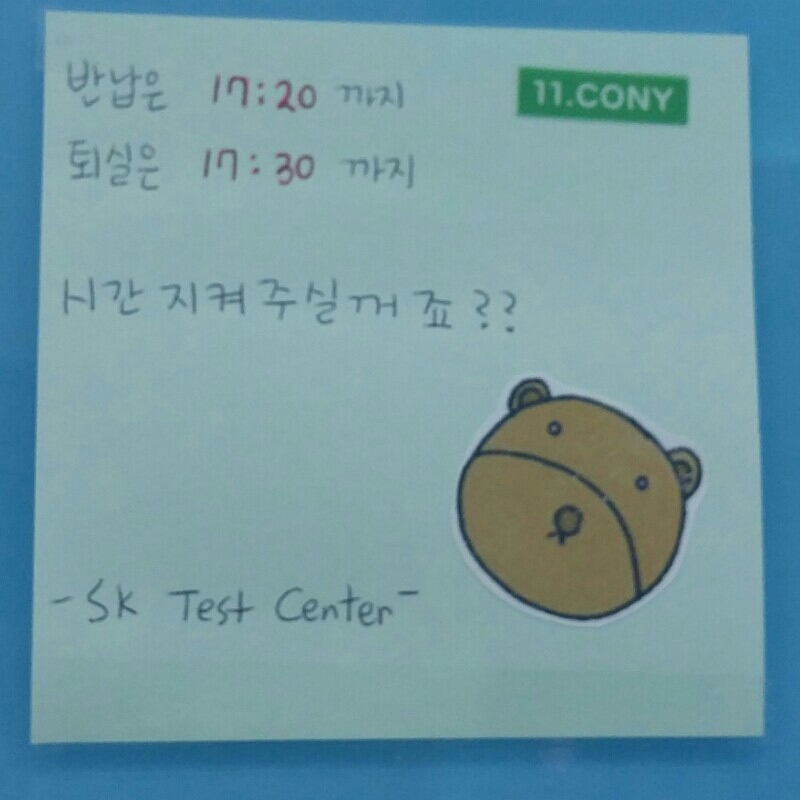 반납은 17:20 까지
11.CONY
퇴실은 17:30 까지
시간 지켜주실꺼 죠??
-SK Test Center-